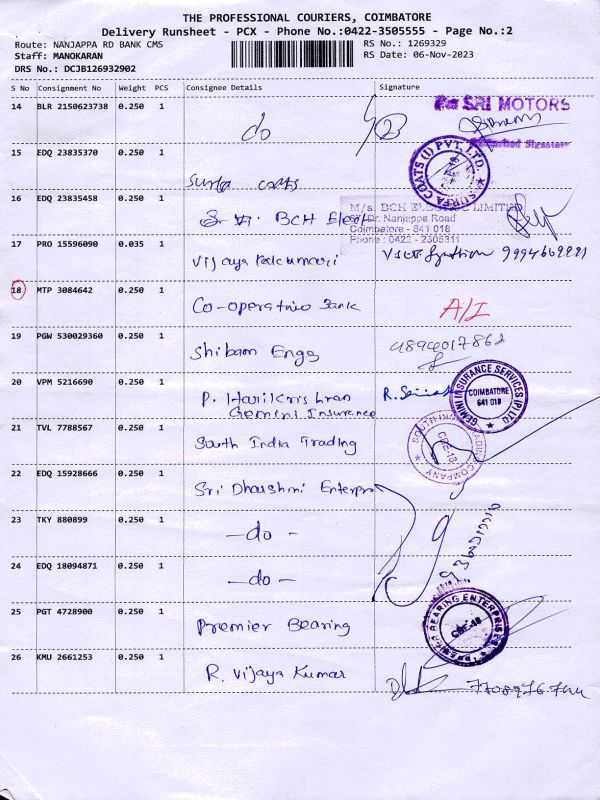 THE PROFESSIONAL COURIERS, COIMBATORE
Delivery Runsheet - PCX - Phone No.:0422-3505555 - Page No.:2
Route: NANJAPPA RD BANK CMS
RS No.: 1269329
Staff: MANOKARAN
RS Date: 06-Nov-2023
DRS No.: DCJB126932902
S No Consignment No Weight PCS Consignee Details Signature
14 BLR 2150623738 0.250 1
do
SRI MOTORS
15 EDQ 23835370 0.250 1
Surfa coats
SURFA COATS (I) PVT. LTD.
16 EDQ 23835458 0.250 1
BCH Elect
M/s. BCH ELECTRIC LIMITED
Dr. Nanjappa Road
Coimbatore - 641 018
Phone : 0422 - 2305311
17 PRO 15596090 0.035 1
Vijaya
18 MTP 3084642 0.250 1
Co-operative Bank
A/I
19 PGW 530029360 0.250 1
Shibam Engg
20 VPM 5216690 0.250 1
P. Harikrishnan
Gemini Insurance
GEMINI INSURANCE SERVICES (P) LTD
COIMBATORE
641 018
21 TVL 7788567 0.250 1
South India Trading
SOUTH INDIA TRADING COMPANY
CBE-18
22 EDQ 15928666 0.250 1
Sri Dharshini Enterpr
23 TKY 880899 0.250 1
- do -
24 EDQ 18094871 0.250 1
- do -
25 PGT 4728900 0.250 1
Premier Bearing
PREMIER BEARING ENTERPRISES
CBE-18
26 KMU 2661253 0.250 1
R. Vijaya Kumar